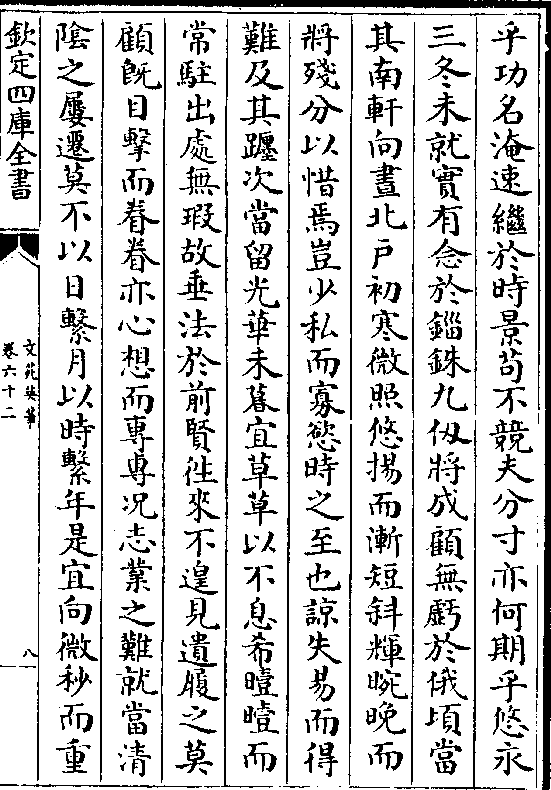 乎功名淹速繼於時景苟不競夫分寸亦何期乎悠永
三冬未就實有念於錙銖九仭將成顧無虧於俄頃當
其南軒向晝北戸初寒微照悠揚而漸短斜輝晼晩而
將殘分以惜焉豈少私而寡慾時之至也諒失易而得
難及其躔次當留光華未暮宜草草以不息希曀曀而
常駐出處無瑕故垂法於前賢徃來不遑見遺履之莫
顧旣目擊而眷眷亦心想而專專况志業之難就當清
隂之屢遷莫不以日繫月以時繫年是宜向微秒而重
欽定四庫全書
文苑英華
卷六十二
八